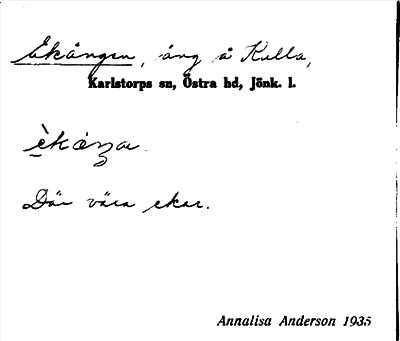 Ekängen, äng å Kulla,
Karlstorps sn, Östra hd, Jönk. l.
Där växa ekar.
Annalisa Anderson 1935